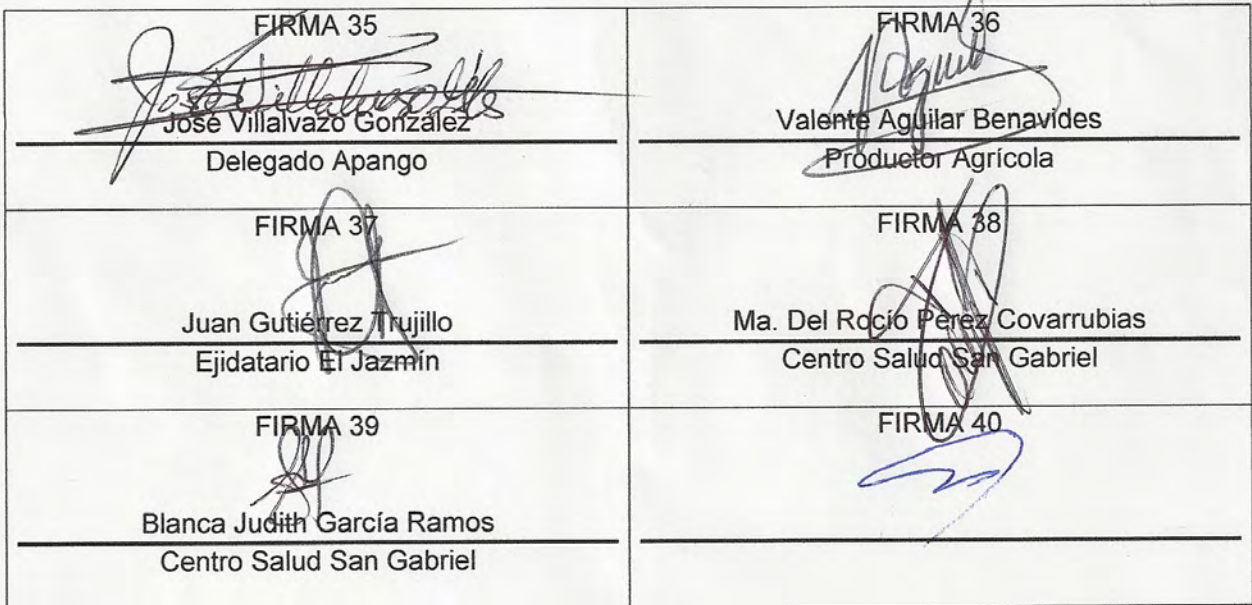 FIRMA 35
José Villalvazo González
Delegado Apango
FIRMA 36
Valente Aguilar Benavides
Productor Agrícola
FIRMA 37
Juan Gutiérrez Trujillo
Ejidatario El Jazmín
FIRMA 38
Ma. Del Rocío Pérez Covarrubias
Centro Salud San Gabriel
FIRMA 39
Blanca Judith García Ramos
Centro Salud San Gabriel
FIRMA 40